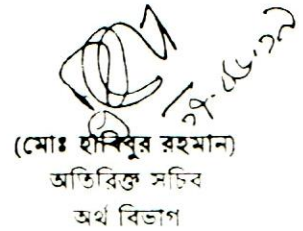 (মোঃ হাবিবুর রহমান)
অতিরিক্ত সচিব
অর্থ বিভাগ